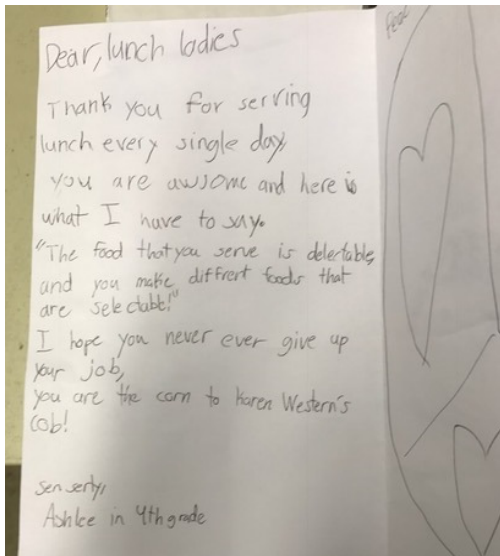 Dear, lunch ladies
Thank you for serving
lunch every single day,
you are awsome and here is
what I have to say.
"The food that you serve is delectable,
and you make diffrert foods that
are selectable!"
I hope you never ever give up
your job,
you are the corn to Karen Western's
cob!
senserly,
Ashlee in 4th grade